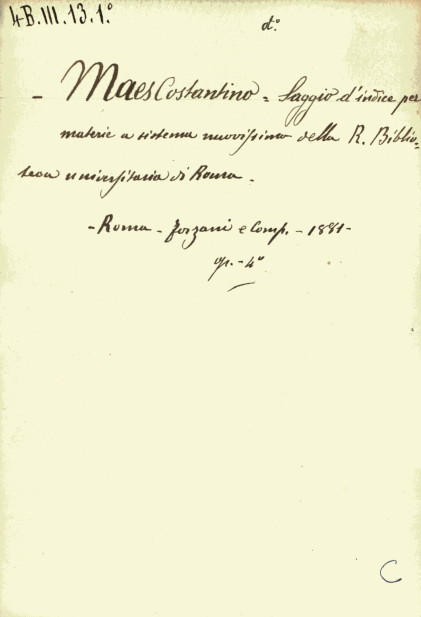 4-B.III.13.1.º
dº.
- Maes Costantino = Saggio d'indice per
materie a sistema nuovissimo della R. Biblio=
teca universitaria di Roma -
- Roma - Forzani e Comp. - 1881 -
gr. - 4º
C